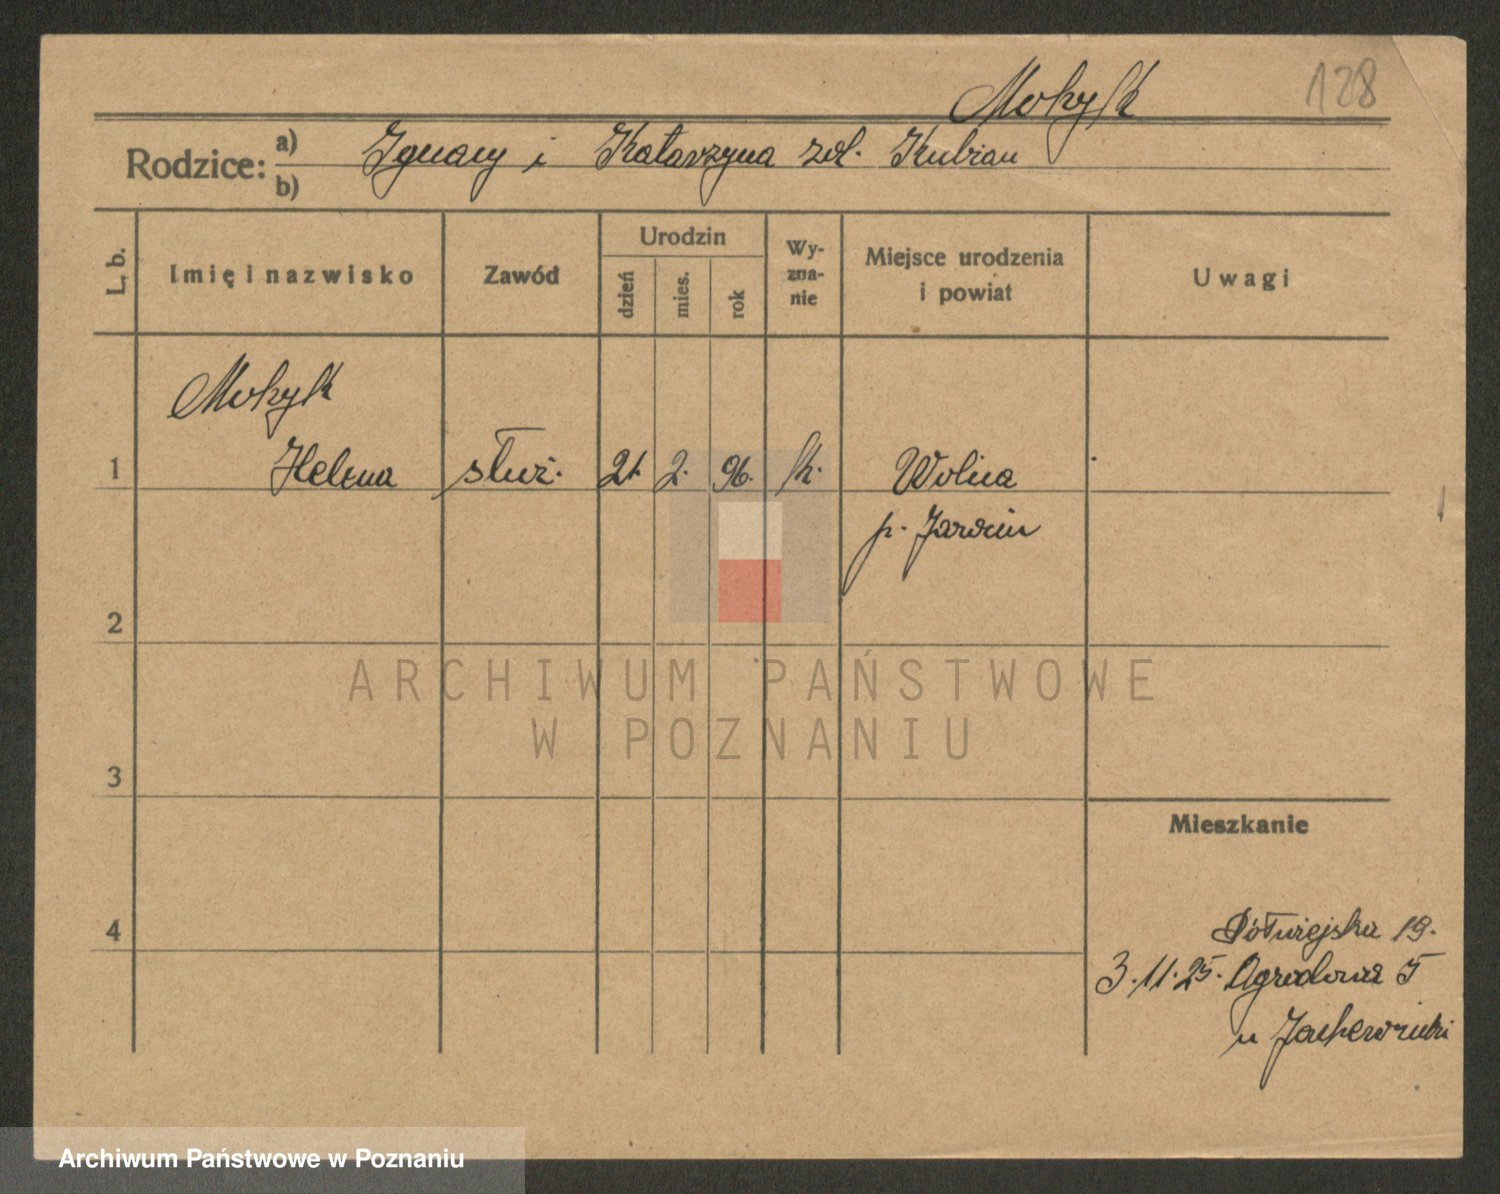 128
Rodzice: a) Ignacy i Katarzyna
b)
L. b.
Imię i nazwisko
Zawód
Urodzin
dzień
mies.
rok
Wy-
zna-
nie
Miejsce urodzenia
i powiat
Uwagi
1 Helena służ. 21. 2. 96. k. Wolica
p. Jarocin
2
ARCHIWUM PAŃSTWOWE
W POZNANIU
3
Mieszkanie
4
Półwiejska 19.
3.11.25. Ogrodowa 5
u
Archiwum Państwowe w Poznaniu